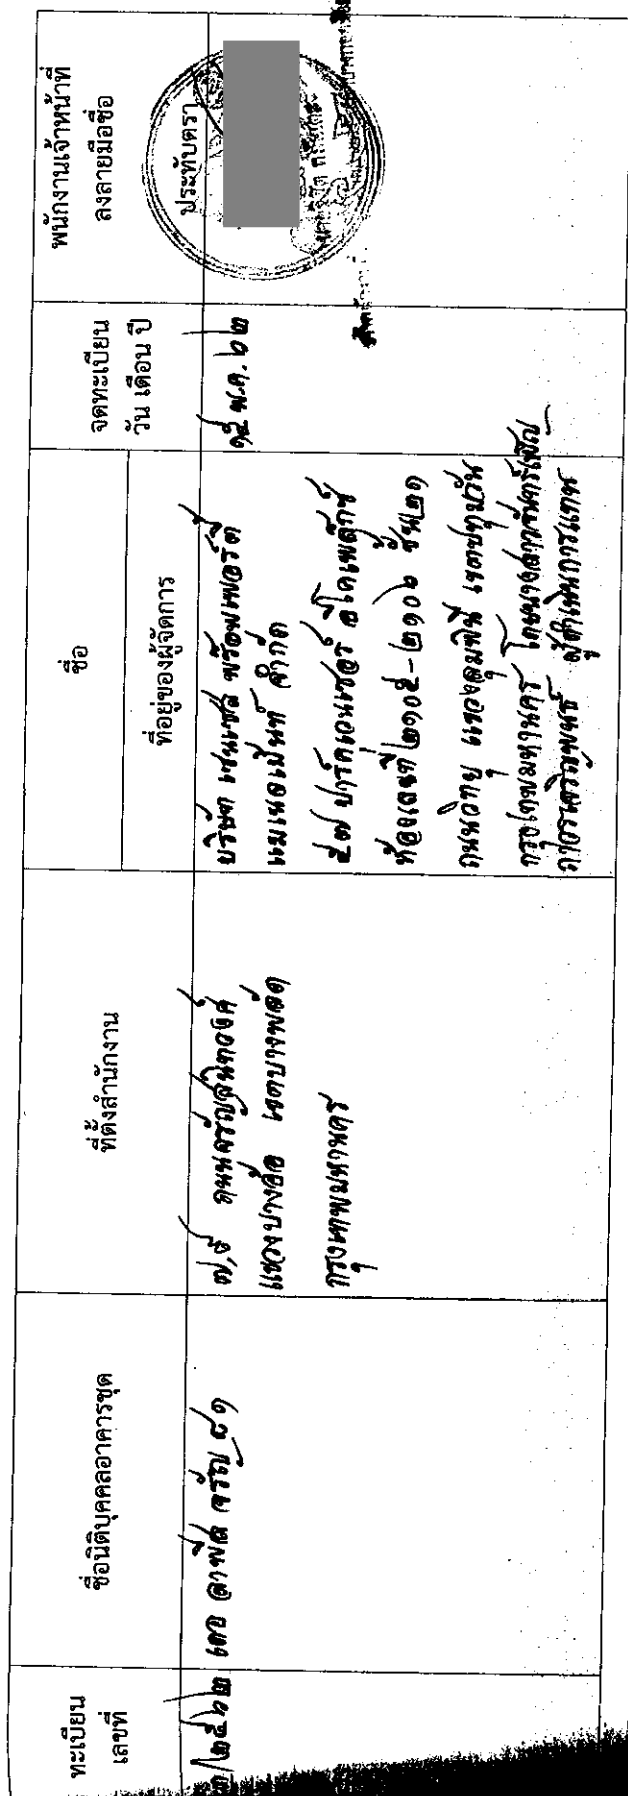 ทะเบียน
เลขที่
ชื่อนิติบุคคลอาคารชุด
ที่ตั้งสำนักงาน
ชื่อ
ที่อยู่ของผู้จัดการ
จดทะเบียน
วัน เดือน ปี
พนักงานเจ้าหน้าที่
ลงลายมือชื่อ
ประทับตรา
๓/๒๕๖๒
เดอ ลาพีส จรัญ ๘๑
๗,๙ ถนนจรัญสนิทวงศ์
แขวงบางอ้อ เขตบางพลัด
กรุงเทพมหานคร
บริษัท เซนเซส พร็อพเพอร์ตี้
แมเนจเม้นท์ จำกัด
๕๗ ปาร์คเวนเชอร์ อีโคเพล็กซ์
ห้องเลขที่ ๒๑๐๕-๒๑๐๖ ชั้น ๒๑
ถนนวิทยุ แขวงลุมพินี เขตปทุมวัน
กรุงเทพมหานคร โดยนางสาวจันทร์เพ็ญ
ผู้ดำเนินการแทน
๑๕ พ.ค. ๖๒